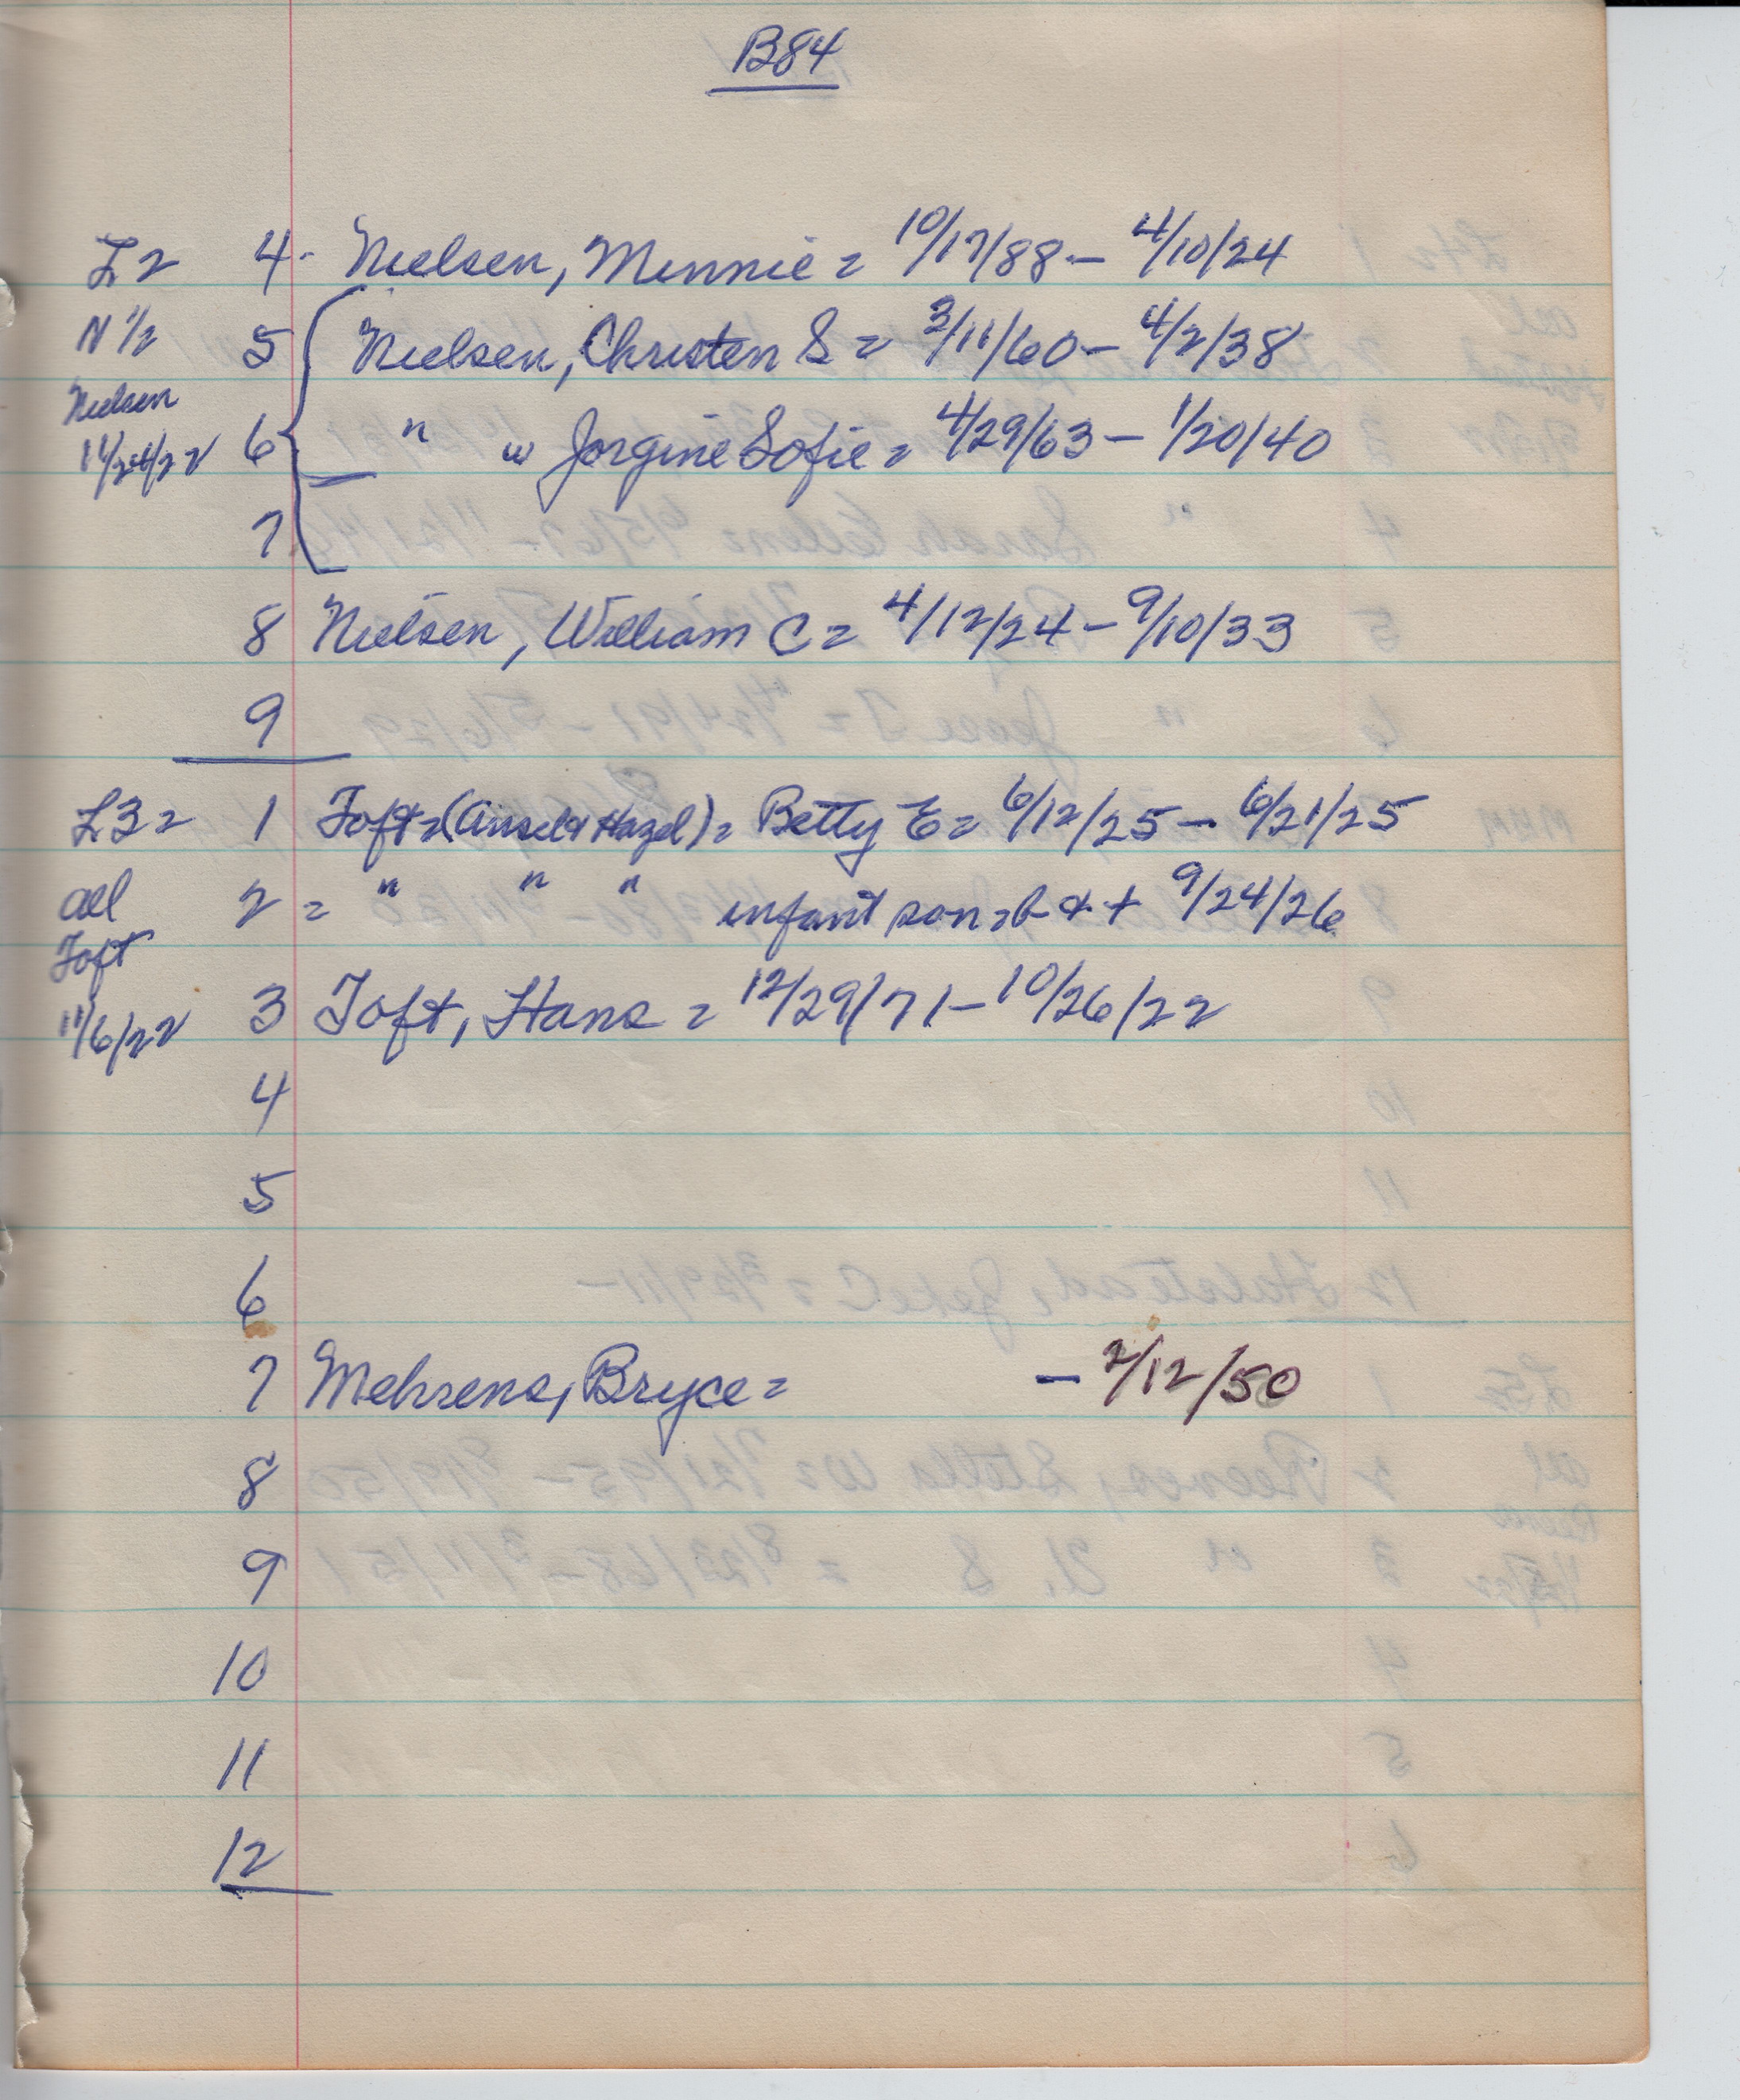 B84
L2 4. Nielsen, Minnie = 10/17/88 - 4/10/24
N 1/2 5 Nielsen, Christen S = 3/11/60 - 4/2/38
Nielsen
11/24/22 6 " w Jorgine Sofie = 4/29/63 - 1/20/40
7
8 Nielsen, William C = 4/12/24 - 9/10/33
9
L3 = 1 Toft = (Ansel & Hazel) = Betty E = 6/12/25 - 6/21/25
all 2 = " " " infant son = b & + 9/24/26
Toft
11/6/22 3 Toft, Hans = 12/29/71 - 10/26/22
4
5
6
7 Mehrens, Bryce = - 2/12/50
8
9
10
11
12